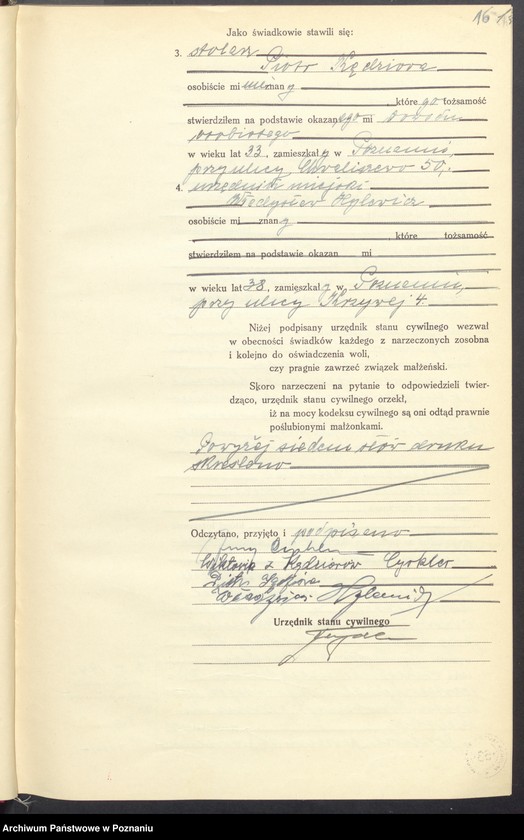 16
Jako świadkowie stawili się:
3. stolarz
Piotr Kędziora
osobiście mi nieznany
, które go tożsamość
stwierdziłem na podstawie okazanego mi dowodu
osobistego
w wieku lat 33, zamieszkały w Poznaniu,
przy ulicy Chwaliszewo 50,.
4. urzędnik miejski
Władysław
osobiście mi znany
, które tożsamość
stwierdziłem na podstawie okazan mi
w wieku lat 38, zamieszkały w Poznaniu,
przy ulicy Krzywej 4.
Niżej podpisany urzędnik stanu cywilnego wezwał
w obecności świadków każdego z narzeczonych zosobna
i kolejno do oświadczenia woli,
czy pragnie zawrzeć związek małżeński.
Skoro narzeczeni na pytanie to odpowiedzieli twier-
dząco, urzędnik stanu cywilnego orzekł,
iż na mocy kodeksu cywilnego są oni odtąd prawnie
poślubionymi małżonkami.
Powyżej siedem słów druku
skreślono
Odczytano, przyjęto i podpisano
Wiktoria z Kędziorów Cyrkler
Piotr Kędziora
Urzędnik stanu cywilnego
Archiwum Państwowe w Poznaniu